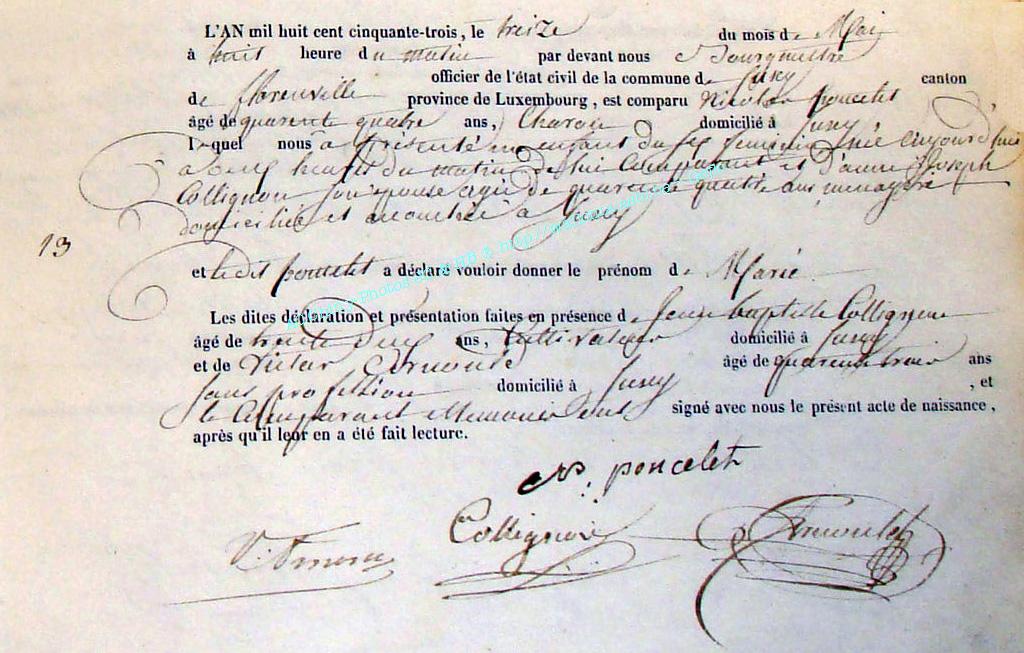 L'AN mil huit cent cinquante-trois, le treize du mois de Mai
à huit heure du matin par devant nous Bourgmestre
officier de l'état civil de la commune de Jusey canton
de florenville province de Luxembourg, est comparu Nicolas poncelet
âgé de quarent quatre ans, Charon domicilié à Jusey,
lequel nous à présenté un enfant du sexe feminin née cejourd'hui
a heures du matin de lui Comparant et d'anne Joseph
Collignon son épouse agée de quarente quatre ans menagère
domiciliée et à Jusey
13
et ledit poncelet a déclaré vouloir donner le prénom de Marie
Les dites déclaration et présentation faites en présence de Jean baptiste Collignon
âgé de trente deux ans, Cultivateur domicilié à Jusey
et de Victor âgé de quarente trois ans
sans profession domicilié à Jusey, et
le Comparant et temoins ont signé avec nous le présent acte de naissance,
après qu'il leur en a été fait lecture.
poncelet
Collignon